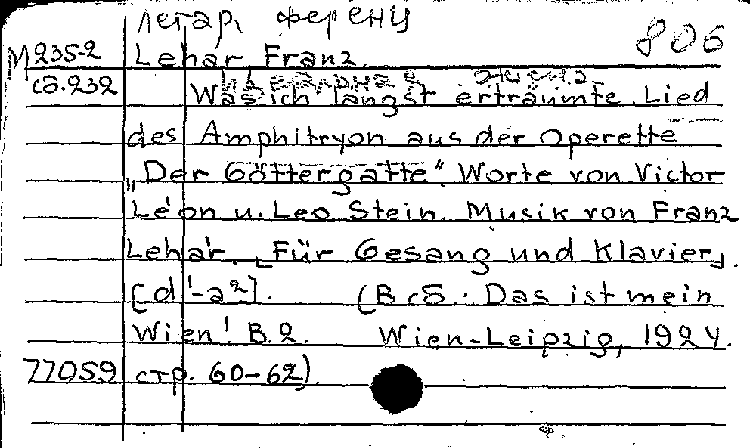 Легар, Ференц
806
М235-2 Lehar Franz.
сб.232 Was ich längst erträumte. Lied
des Amphitryon aus der Operette
„Der Göttergatte“. Worte von Victor
Léon u. Leo Stein. Musik von Franz
Lehár. [Für Gesang und Klavier].
[d'-a²]. (В сб.: Das ist mein
Wien! B. 2. Wien-Leipzig, 1924.
77059 стр. 60-62)